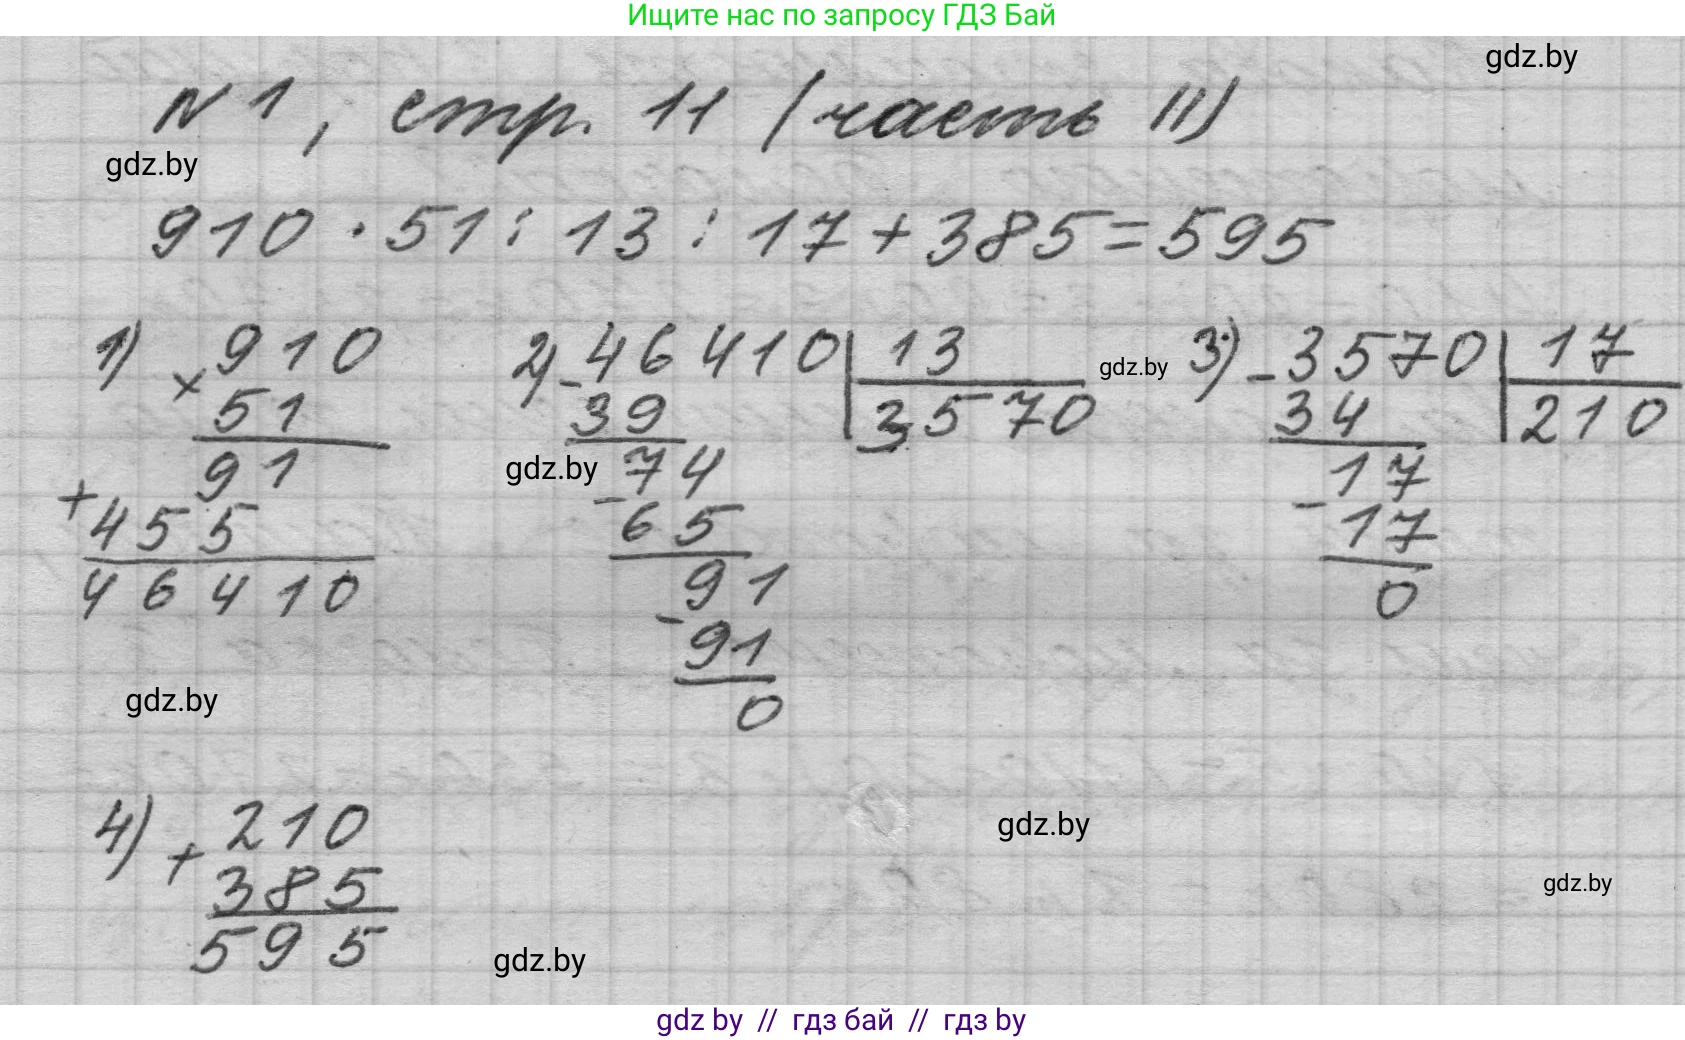 Ищите нас по запросу ГДЗ Бай
gdz.by
№ 1, стр. 11 (часть II)
gdz.by
910 · 51 : 13 : 17 + 385 = 595
1) 910
× 51
91
+ 455
46410
2) - 46410 | 13
39 3570
gdz.by
74
- 65
91
- 91
0
gdz.by
3) - 3570 | 17
34 210
17
- 17
0
gdz.by
4) + 210
385
595
gdz.by
gdz.by
gdz.by
gdz by // гдз бай // гдз by